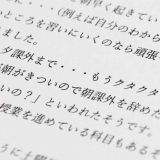 早く起きてい
・・・・(例えば自分のわから
ところを習いにいくのなら頑張
ました。
タ課外まで・・・もうクタクタ
朝がきついので朝課外を辞めた
いの?」といわれたそうです。
授業を進めている科目もあるそ
うに土曜